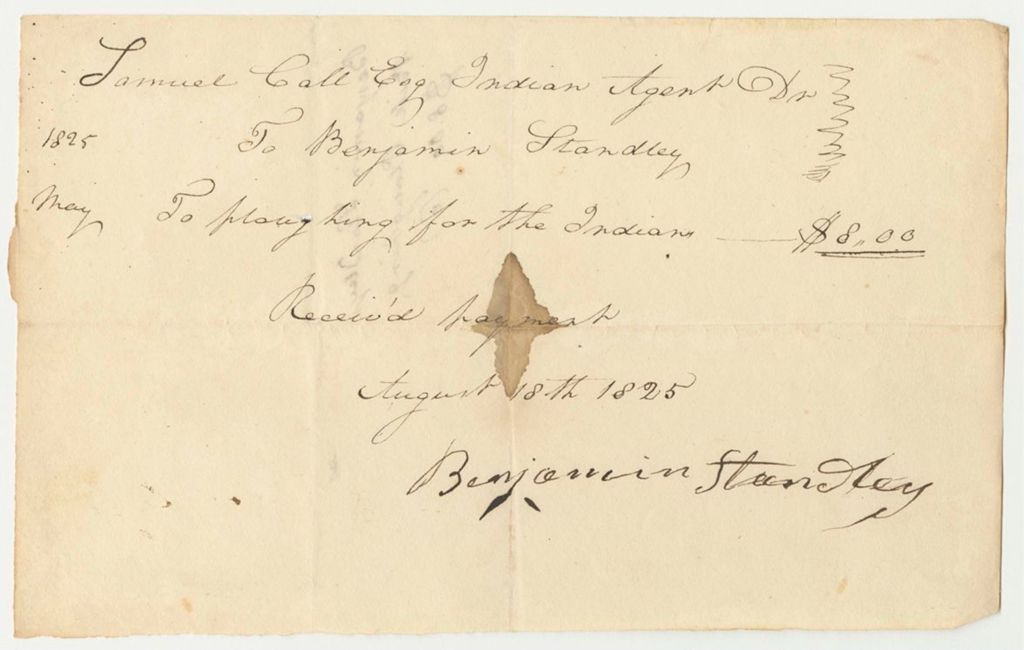 Samuel Call Esq Indian Agent Dr
1825 To Benjamin Standley
May To ploughing for the Indians $8.00
Receiv'd payment
August 18th 1825
Benjamin Standley